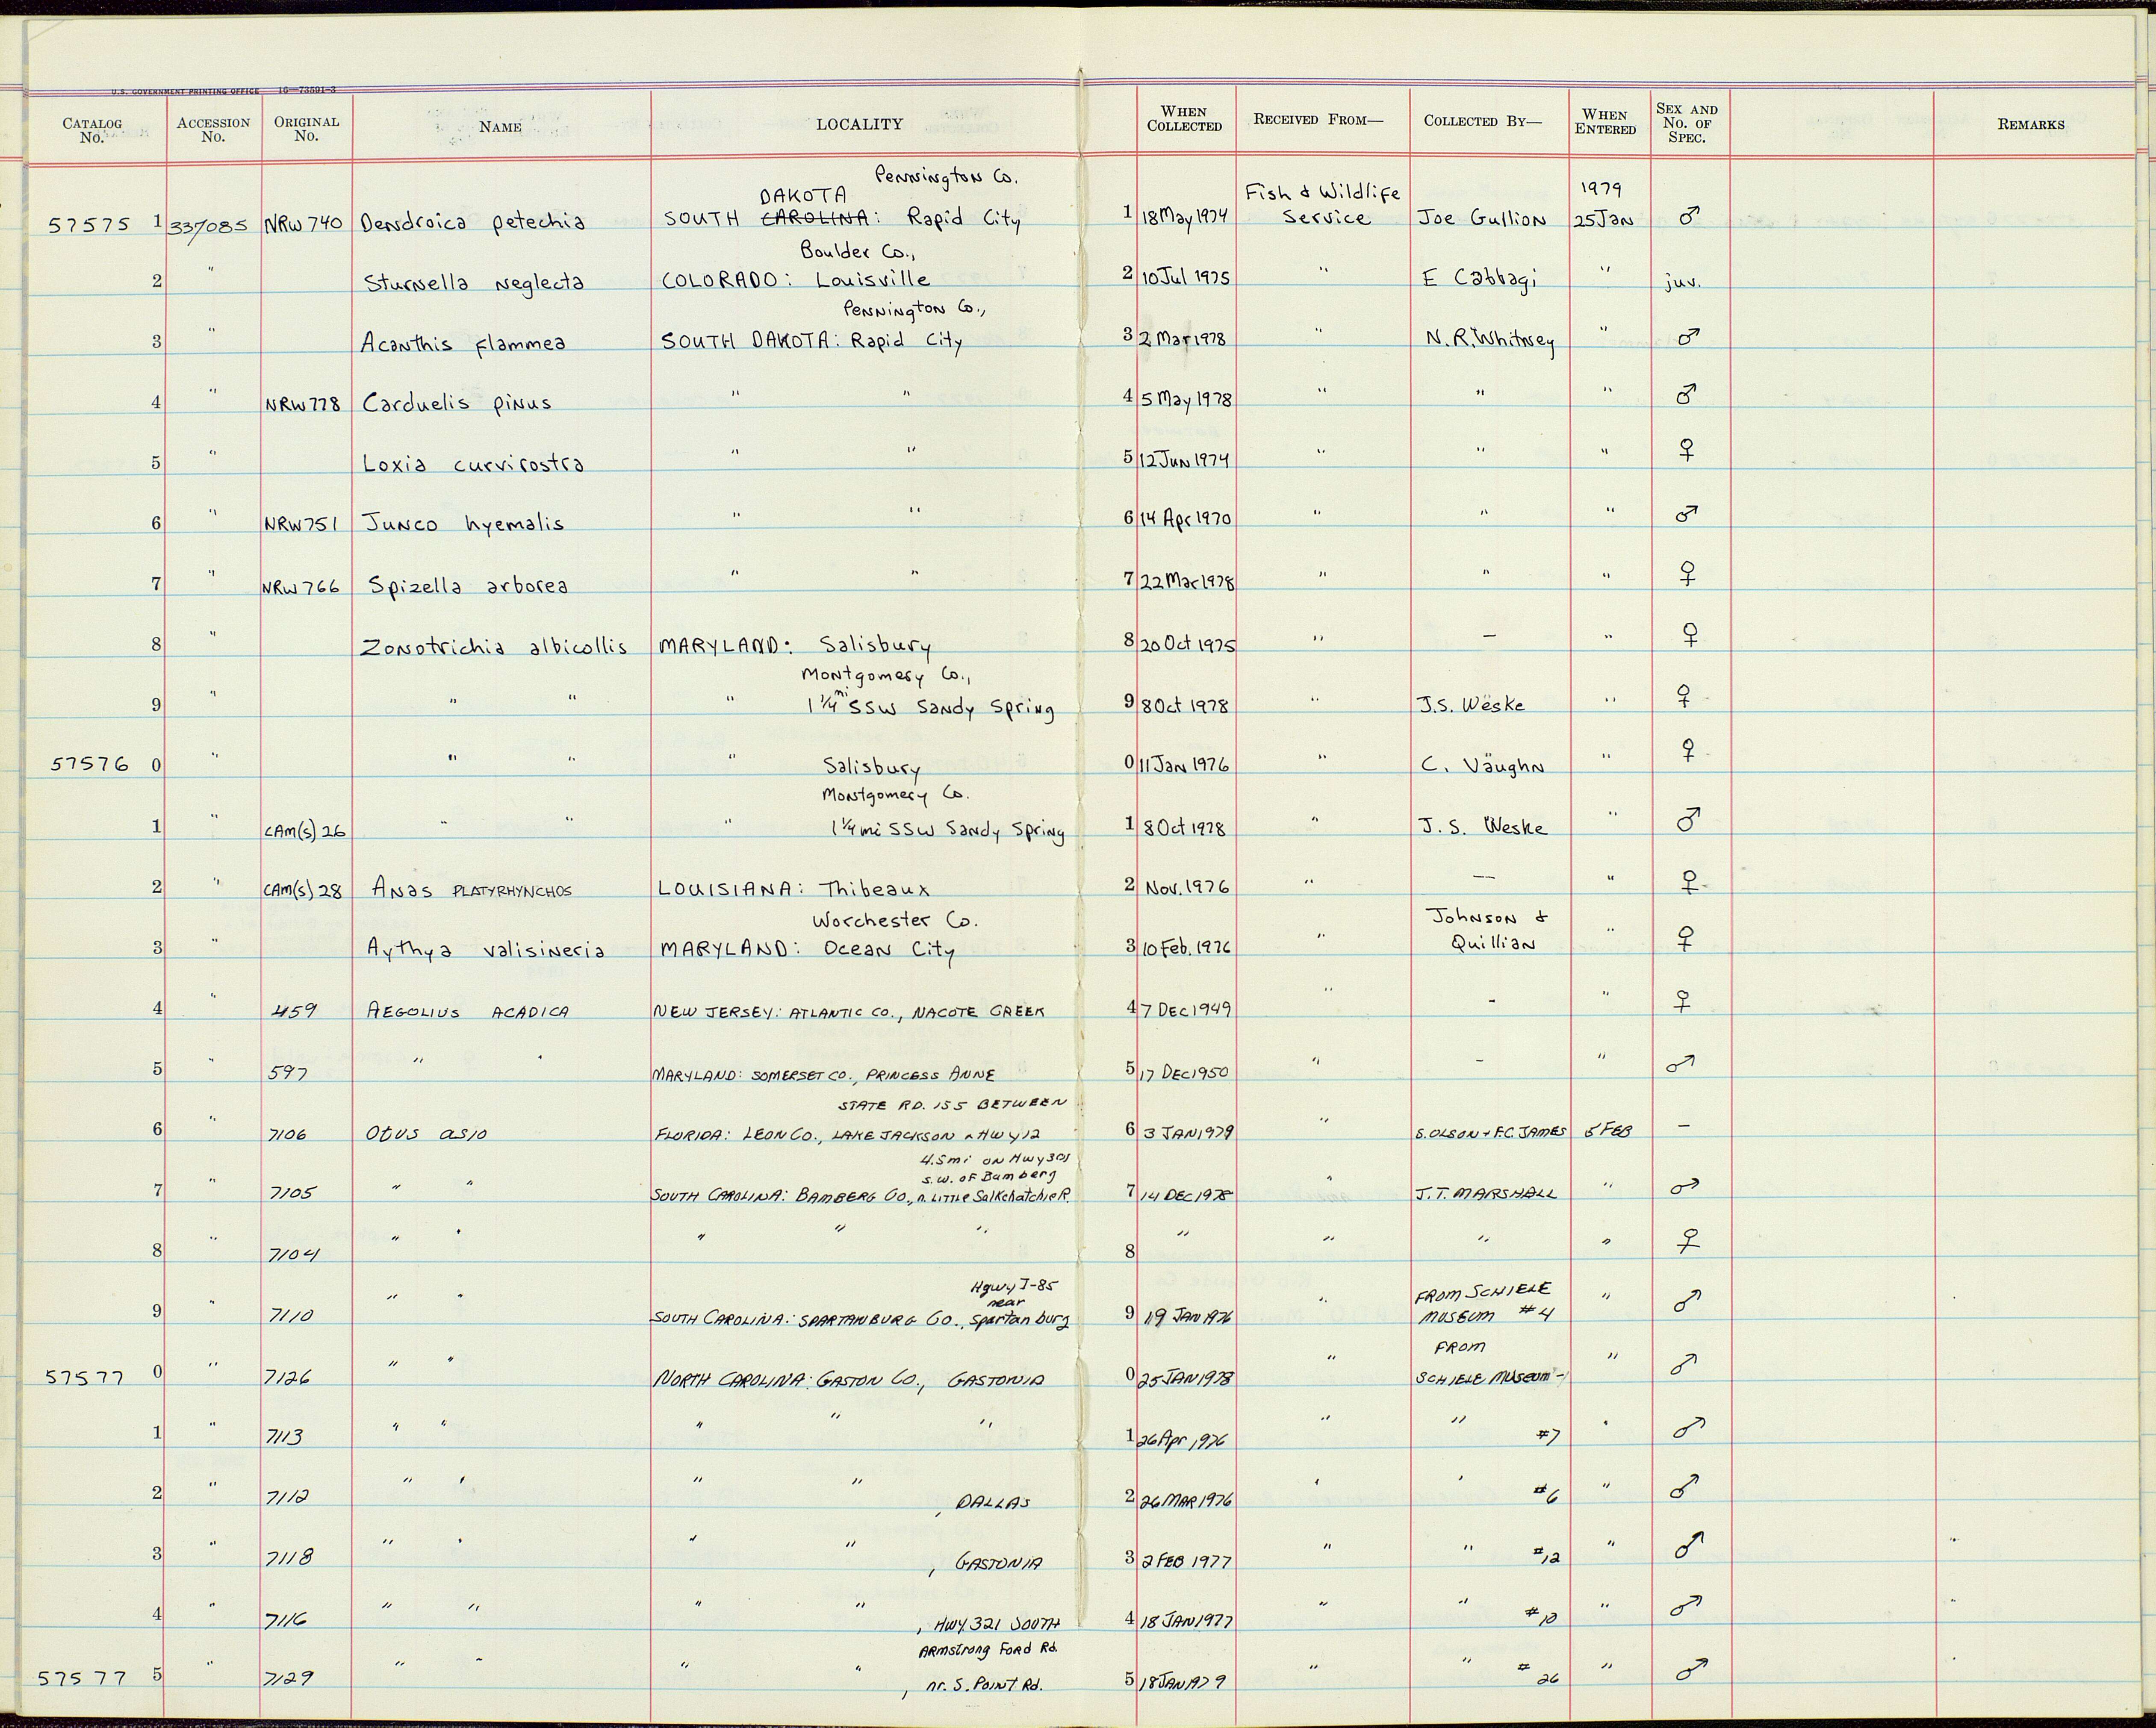 U.S. GOVERNMENT PRINTING OFFICE 16—73591-3
CATALOG No. ACCESSION No. ORIGINAL No. NAME LOCALITY WHEN COLLECTED RECEIVED FROM— COLLECTED BY— WHEN ENTERED SEX AND No. OF SPEC. REMARKS
Pennington Co.
DAKOTA Fish & Wildlife 1979
57575 1 337085 NRW 740 Dendroica petechia SOUTH CAROLINA: Rapid City 1 18 May 1974 Service Joe Gullion 25 Jan ♂
Boulder Co.,
2 " Sturnella neglecta COLORADO: Louisville 2 10 Jul 1975 " E Cabbagi " juv.
Pennington Co.,
3 " Acanthis flammea SOUTH DAKOTA: Rapid City 3 2 Mar 1978 " N.R. Whitney " ♂
4 " NRW 778 Carduelis pinus " " 4 5 May 1978 " " " ♂
5 " Loxia curvirostra " " 5 12 Jun 1974 " " " ♀
6 " NRW 751 Junco hyemalis " " 6 14 Apr 1970 " " " ♂
7 " NRW 766 Spizella arborea " " 7 22 Mar 1978 " " " ♀
8 " Zonotrichia albicollis MARYLAND: Salisbury 8 20 Oct 1975 " — " ♀
Montgomery Co.,
9 " " " " 1 1/4 mi SSW Sandy Spring 9 8 Oct 1978 " J.S. Weske " ♀
57576 0 " " " " Salisbury 0 11 Jan 1976 " C. Vaughn " ♀
Montgomery Co.
1 " CAM(S) 26 " " " 1 1/4 mi SSW Sandy Spring 1 8 Oct 1978 " J. S. Weske " ♂
2 " CAM(S) 28 Anas PLATYRHYNCHOS LOUISIANA: Thibeaux 2 Nov. 1976 " — " ♀
Worchester Co. Johnson &
3 " Aythya valisineria MARYLAND: Ocean City 3 10 Feb. 1976 " Quillian " ♀
4 " 459 AEGOLIUS ACADICA NEW JERSEY: ATLANTIC CO., NACOTE CREEK 4 7 DEC 1949 " - " ♀
5 " 597 " " MARYLAND: SOMERSET CO., PRINCESS ANNE 5 17 DEC 1950 " - " ♂
STATE RD. 155 BETWEEN
6 " 7106 Otus asio FLORIDA: LEON CO., LAKE JACKSON & HWY 12 6 3 JAN 1979 " S. OLSON + F.C. JAMES 5 FEB —
4.5 mi on Hwy 301
S.W. of Bamberg
7 " 7105 " " SOUTH CAROLINA: BAMBERG CO., n. LITTLE Salkehatchie R. 7 14 DEC 1978 " J.T. MARSHALL " ♂
8 " 7104 " " " " " 8 " " " " ♀
Hgwy I-85
near FROM SCHIELE
9 " 7110 " " SOUTH CAROLINA: SPARTANBURG CO., Spartanburg 9 19 JAN 1976 " MUSEUM #4 " ♂
FROM
57577 0 " 7126 " " NORTH CAROLINA: GASTON CO., GASTONIA 0 25 JAN 1978 " SCHIELE Museum - " ♂
1 " 7113 " " " " " 1 26 Apr 1976 " " #7 " ♂
2 " 7112 " " " " , DALLAS 2 26 MAR 1976 " " #6 " ♂
3 " 7118 " " " " , GASTONIA 3 2 FEB 1977 " " #12 " ♂
4 " 7116 " " " " , HWY 321 SOUTH 4 18 JAN 1977 " " #10 " ♂
Armstrong Ford Rd.
57577 5 " 7129 " " " " , nr. S. POINT Rd. 5 18 JAN 1979 " " # 26 " ♂